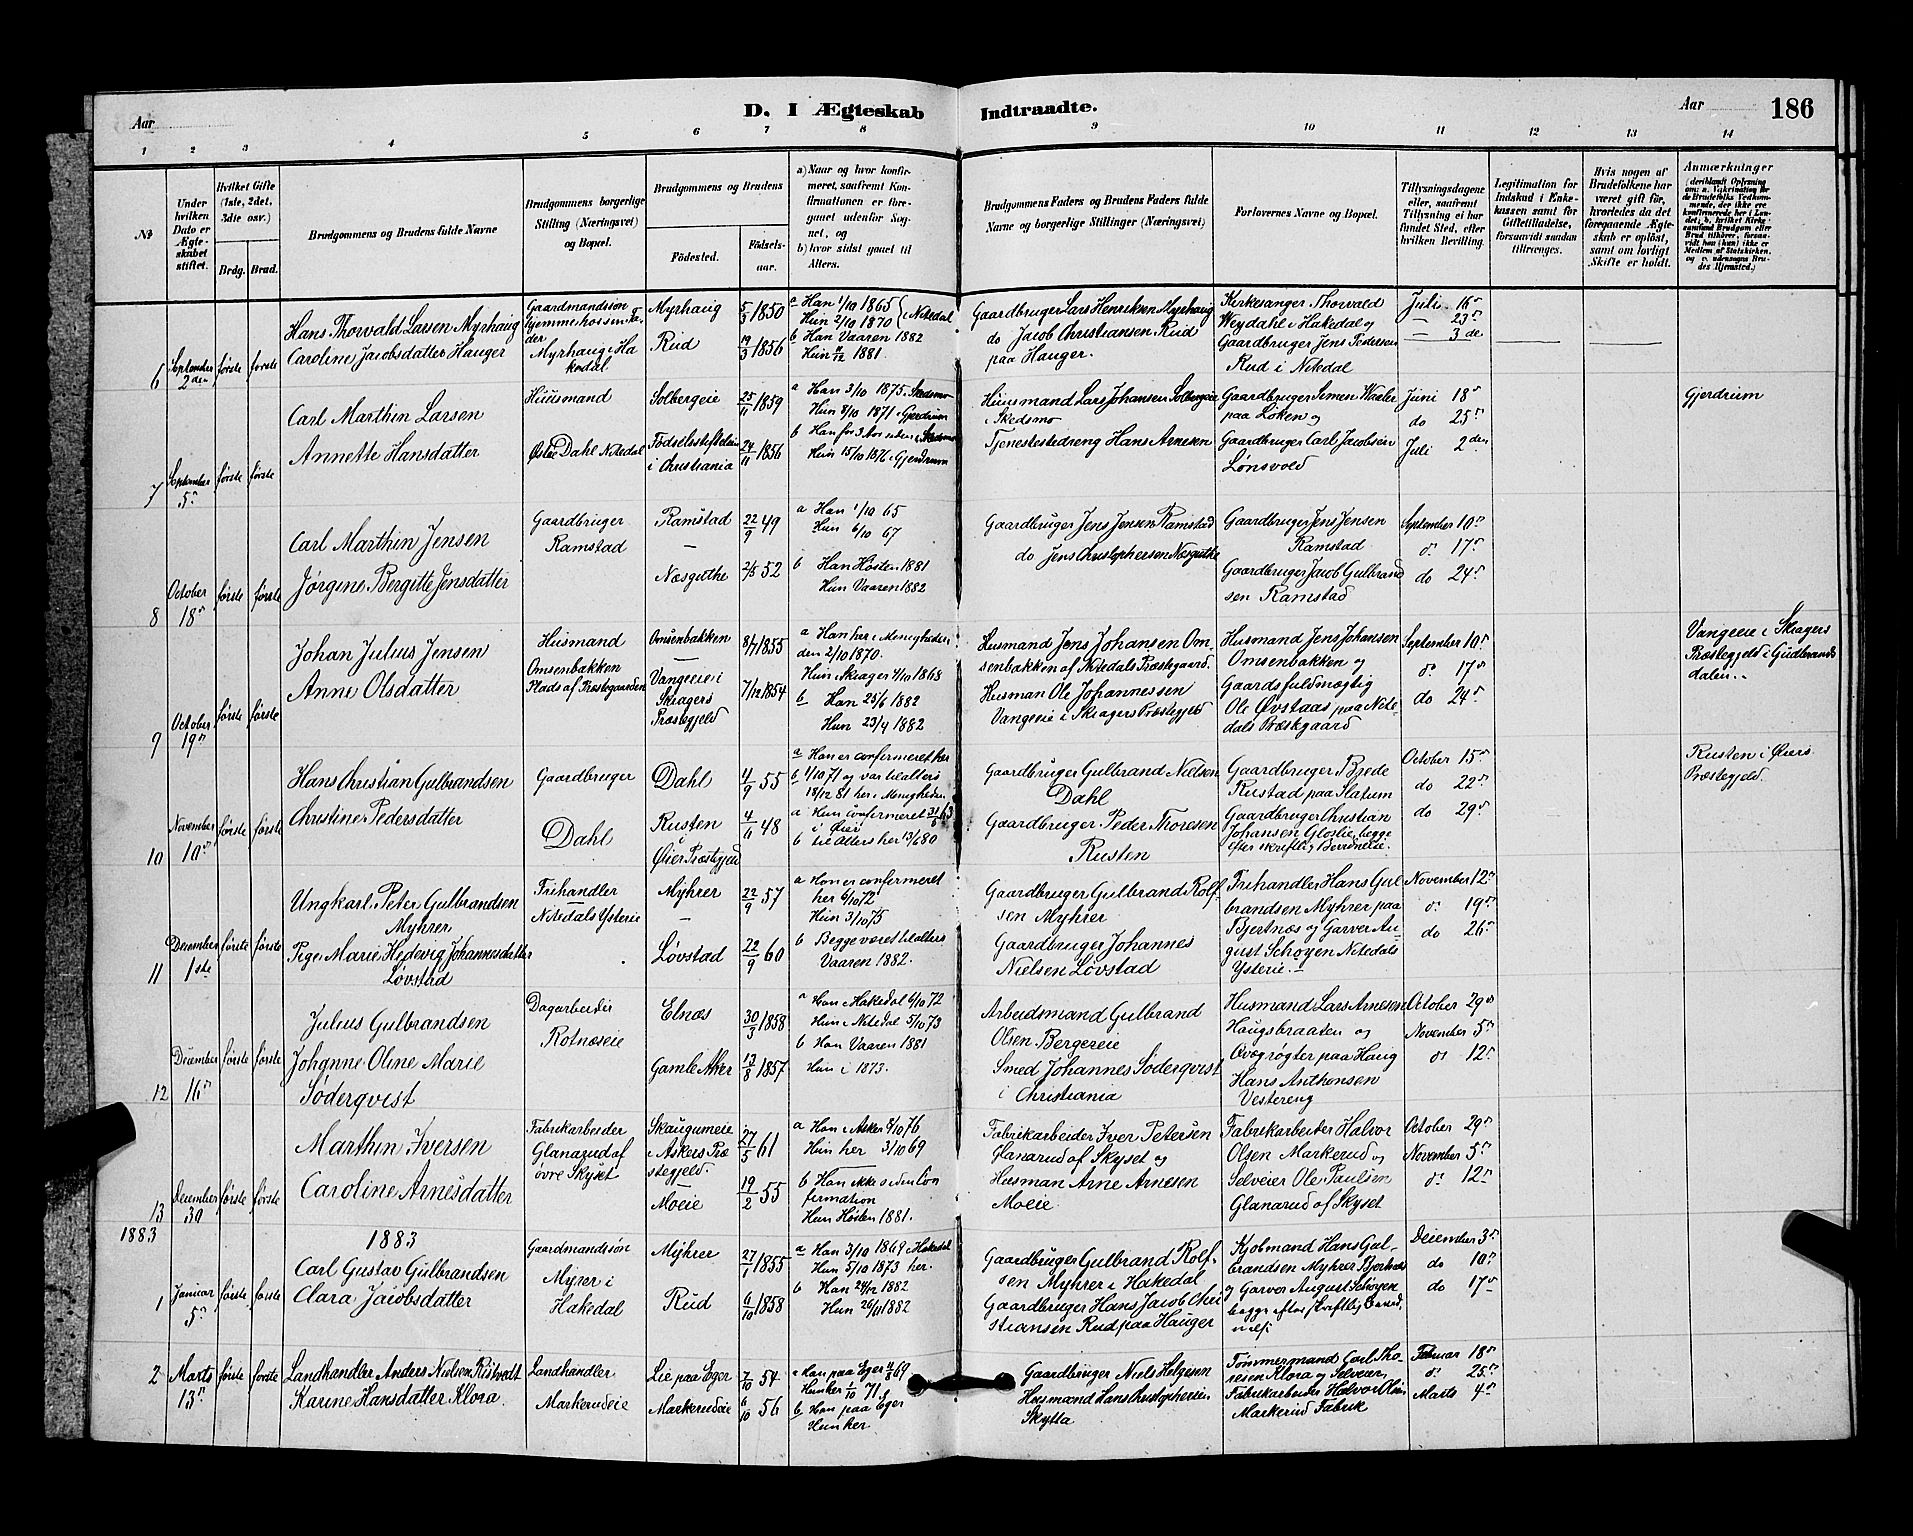 D. I Ægteskab Indtraadte.
Aar
Aar 186
1 2 3 4 5 6 7 8 9 10 11 12 13 14
No
Under hvilken Dato er Ægteskabet stiftet.
Hvilket Gifte (1ste, 2det, 3die osv.)
Brdg. Brud.
Brudgommens og Brudens fulde Navne
Brudgommens borgerlige Stilling (Næringsvei) og Bopæl.
Brudgommens og Brudens
Födested. Födselsaar.
a) Naar og hvor konfirmeret, saafremt Konfirmationen er foregaaet udenfor Sognet, og
b) hvor sidst gaaet til Alters.
Brudgommens Faders og Brudens Faders fulde Navne og borgerlige Stillinger (Næringsvei)
Forlovernes Navne og Bopæl.
Tillysningsdagene eller, saafremt Tillysning ei har fundet Sted, efter hvilken Bevilling.
Legitimation for Indskud i Enkekassen samt for Giftetilladelse, forsaavidt saadan tiltrænges.
Hvis nogen af Brudefolkene har været gift för, hvorledes da det foregaaende Ægteskab er oplöst, samt om lovligt Skifte er holdt.
Anmærkninger
6 September 2den første første
Hans Thorvald Larsen Myrhaug
Caroline Jacobsdatter Hauger
Gaardmandssøn hjemme hos sin Fader Myrhaug i Hakedal
Myrhaug 5/3 1850
Rud 19/3 1856
a Han 1/10 1865 Hun 2/10 1870 i Nitedal
b Han Vaaren 1882
Hun 4/12 1881.
Gaardbruger Lars Henriksen Myrhaug
do Jacob Christiansen Rud paa Hauger.
Kirkesanger Thorvald Weydahl i Hakedal og
Gaardbruger Jens Pedersen Rud i Nitedal
Juli 16de
— 23de
— 3de
7 September 5te første første
Carl Marthin Larsen
Annette Hansdatter
Huusmand
Østre Dahl Nitedal
Solbergeie 25/11 1859
Fødselsstiftelsen i Christiania 24/11 1856
a Han 3/10 1875 i Skedsmo
Hun 8/10 1871 i Gjerdrum
b Han for 3 Aar siden i Skedsmo
Hun 15/10 1876 i Gjerdrum
Huusmand Lars Johansen Solbergeie i Skedsmo
Tjenestedreng Hans Arnesen
Gaardbruger Simen Waaler paa Løken og
Gaardbruger Carl Jacobsen Lønsvold
Juni 18de
do 25de
Juli 2den
Gjerdrum
8 October 18de første første
Carl Marthin Jensen
Jørgine Bergitte Jensdatter
Gaardbruger
Ramstad
Ramstad 22/9 49
—
Næsguthe 2/5 52
a Han 1/10 65
Hun 6/10 67
b Han Høsten 1881
Hun Vaaren 1882
Gaardbruger Jens Jensen Ramstad
do Jens Christophersen Næsguthe
Gaardbruger Jens Jensen Ramstad
Gaardbruger Jacob Gulbrandsen Ramstad
September 10de
do 17de
do 24de
9 October 19de første første
Johan Julius Jensen
Anne Olsdatter
Husmand
Omsenbakken
Plads af Præstegaarden
Omsenbakken 8/7 1855
—
Vangeeie i Skiagers Præstegjeld 7/12 1854
a Han her i Menigheden den 2/10 1870.
Hun i Skiager 4/10 1868
b Han 25/6 1882
Hun 23/4 1882
Husmand Jens Johansen Omsenbakken af Nitedals Præstegaard.
Husman Ole Johannessen Vangeeie i Skiagers Præstegjeld
Husmand Jens Johansen Omsenbakken og
Gaardsfuldmægtig Ole Øvstaas paa Nitedals Præstegaard
September 10de
do 17de
do 24de
Vangeeie i Skiagers Præstegjeld i Gudbrandsdalen..
10 November 10de første første
Hans Christian Gulbrandsen
Christine Pedersdatter
Gaardbruger
Dahl
Dahl 4/9 55
Rusten 4/11 48
Øier Præstegjeld
a Han er confirmeret her
b 1/10 71 og var til alters 18/12 81 her i Menigheden
a Hun confirmeret i Øier
b til Alters her 13/6 80
Gaardbruger Gulbrand Nielsen Dahl
Gaardbruger Peder Thoresen Rusten
Gaardbruger Brede Rustad paa Slatum
Gaardbruger Christian Johansen Gloslie, begge efter skriftlig Bevidnelse.
October 15de
do 22de
do 29de
Rusten i Øiers Præstegjeld.
11 December 1ste første første
Ungkarl Peter Gulbrandsen Myhrer
Pige Marie Hedevig Johannesdatter Løvstad
Frihandler
—
Nitedals Ysterie
Myhrer 22/9 57
—
Løvstad 22/9 60
a Han er confirmeret her 6/10 72
Hun 3/10 75
b Begge været til alters Vaaren 1882.
Gaardbruger Gulbrand Rolfsen Myhrer
Gaardbruger Johannes Nielsen Løvstad
Frihandler Hans Gulbrandsen Myhrer paa Bjertnæs og Garver August Schøyen Nitedals Ysterie.
November 12te
do 19de
do 26de
12 December 16de første første
Julius Gulbrandsen
Johanne Oline Marie Søderqvist
Dagarbeider
Rotnæseie
Elnæs 30/3 1858
Gamle Aker 13/8 1857
a Han i Hakedal 6/10 72
Hun i Nitedal 5/10 73
b Han Vaaren 1881
Hun i 1873.
Arbeidsmand Gulbrand Olsen Bergereie
Smed Johannes Søderqvist i Christiania
Husmand Lars Arnesen Haugsbraaten og
Qvægrøgter paa Haug Hans Anthonsen Vestereng
October 29de
November 5te
do 12te
13 December 30 første første
Marthin Iversen
Caroline Arnesdatter
Fabrikarbeider
Glanarud af øvre Skyset
Skaugumeie i Askers Præstegjeld. 27/5 61
—
Moeie 19/2 55
a Han i Asker 8/10 76
Hun her 3/10 69
b Han ikke siden Confirmation
Hun Høsten 1881.
Fabrikarbeider Iver Petersen Glanarud af Skyset og
Husman Arne Arnesen Moeie
Fabrikarbeider Halvor Olsen Markerud og
Selveier Ole Paulsen Glanarud af Skyset
October 29de
November 5te
do 12te
1883
1883
1 Januar 5te første første
Carl Gustav Gulbrandsen
Clara Jacobsdatter
Gaardmandssøn
Myrer i Hakedal
Myhrer 27/1 1855
Rud 6/10 1858
a Han 3/10 1869 i Hakedal
Hun 5/10 1873 her.
b Han 24/12 1882
Hun 26/11 1882
Gaardbruger Gulbrand Rolfsen Myhrer i Hakedal
Gaardbruger Hans Jacob Christiansen Rud paa Hauger
Kjobmand Hans Gulbrandsen Myhrer Bjertnæs og Garver August Schøyen begge efter skriftlig Bevidnelse
December 3de
do 10de
do 17de
2 Marts 13de første første
Landhandler Anders Nielsen Ristvedt
Karine Hansdatter Klora.
Landhandler
Markerudeie
Lie paa Eger 7/10 54
Markerudeie 6/10 56
a Han paa Eger 69
Hun her 1/10 71
b Han paa Eger
Hun her
Gaardbruger Niels Helgesen
Husmand Hans Christophersen Skytta
Tømmermand Carl Thoresen Klora og Selveier,
Fabrikarbeider Halvor Olsen Markerud Fabrik
Februar 18de
do 25de
Marts 4de